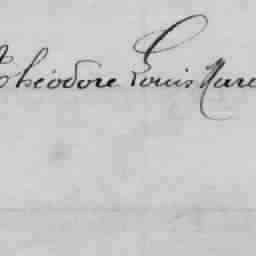 Théodore Louis Marc